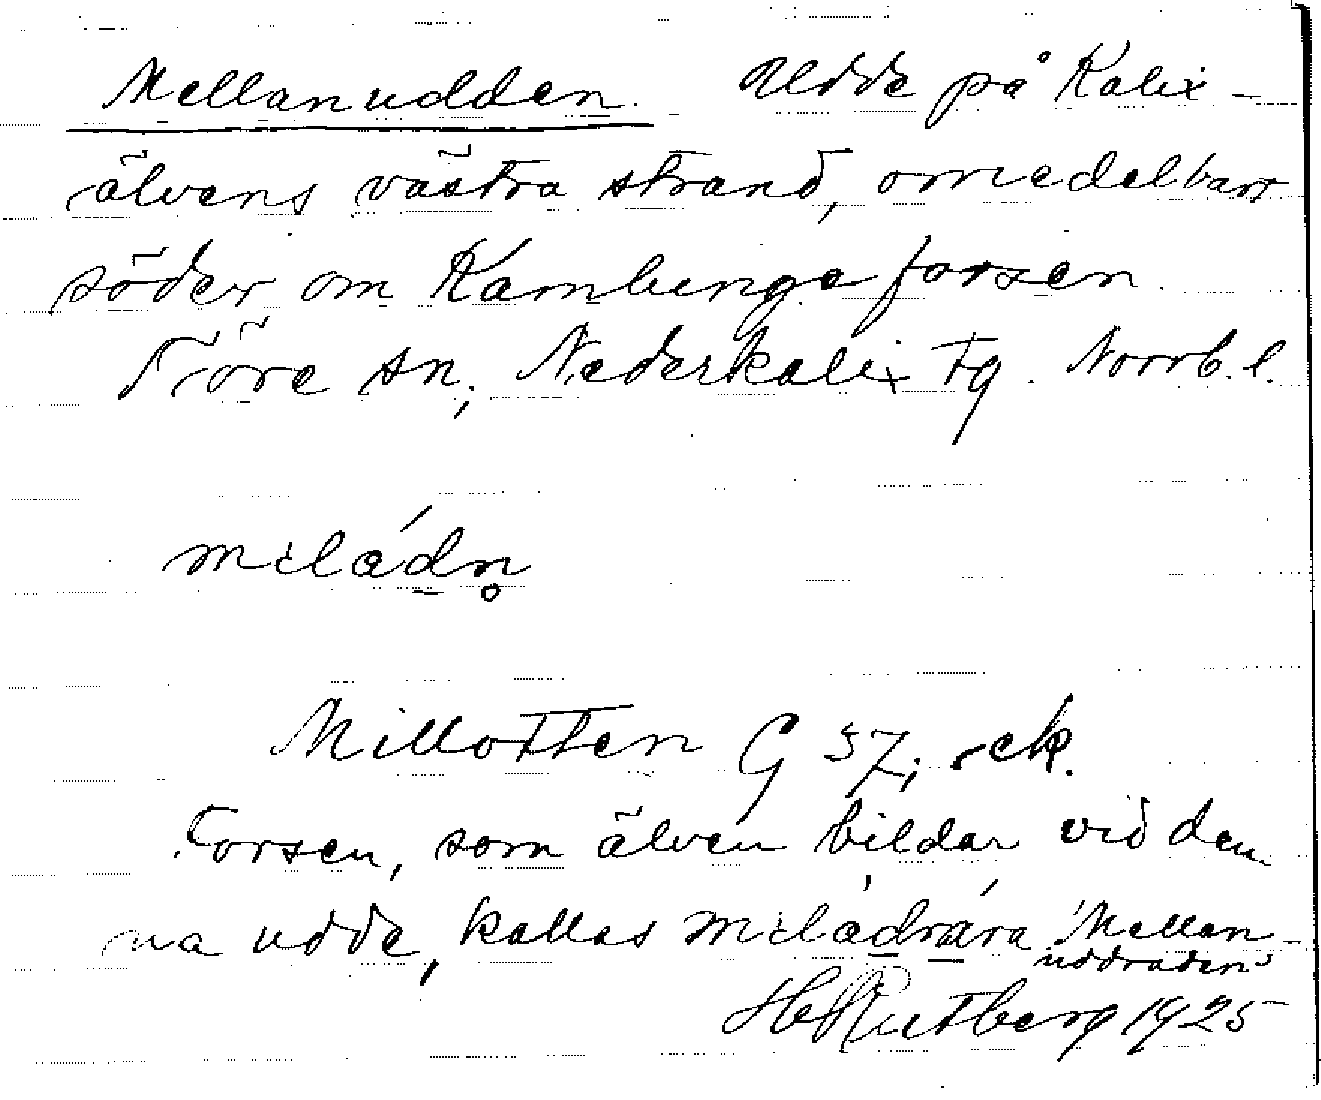 Mellanudden. Udde på Kalix-
älvens västra strand, omedelbart
söder om Kamlungeforsen.
Töre sn, Nederkalix tg. Norrb. l.
mìládn̥
Millotten G 57, ek.
Forsen, som älven bildar vid den-
na udde, kallas mìládrára Mellan-
uddraden
H Rutberg 1925